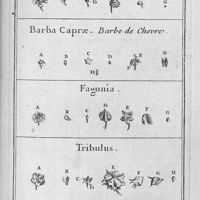 G
Barba Capræ. Barbe de Chevre.
A B C D E F G
H
Fagonia.
A B C D E F G
Tribulus.
A B C D E F G H